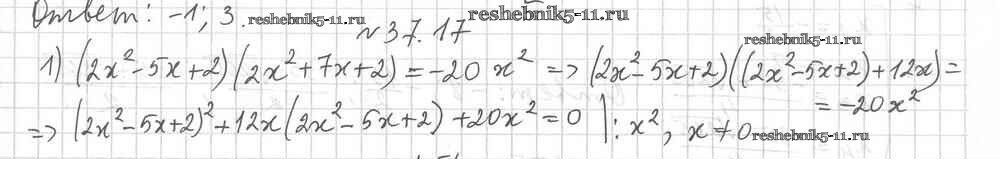 Ответ: -1; 3. reshebnik5-11.ru reshebnik5-11.ru
№37.17
reshebnik5-11.ru
1) (2x²-5x+2)(2x²+7x+2)=-20x² => (2x²-5x+2)((2x²-5x+2)+12x)=
=-20x²
=> (2x²-5x+2)²+12x(2x²-5x+2)+20x²=0 |:x², x≠0 reshebnik5-11.ru